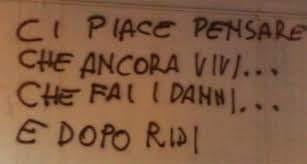 CI PIACE PENSARE
CHE ANCORA VIVI...
CHE FAI I DANNI...
E DOPO RIDI